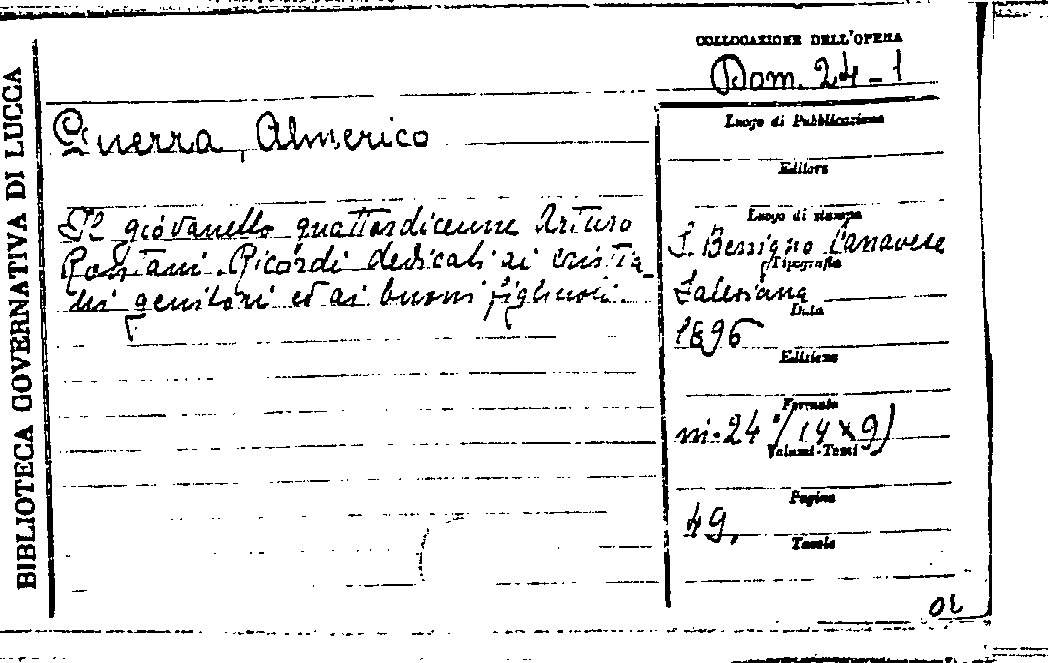 BIBLIOTECA GOVERNATIVA DI LUCCA
COLLOCAZIONE DELL'OPERA
Dom. 24-1
Guerra, Almerico
Il giovanetto quattordicenne Arturo
Ricordi dedicati ai cristia-
ni genitori ed ai buoni figliuoli.
Luogo di Pubblicazione
Editore
Luogo di stampa
S. Benigno Canavese
Tipografia
Salesiana
Data
1896
Edizione
Formato
in-24° (14x9)
Volumi-Tomi
Pagine
49.
Tavole